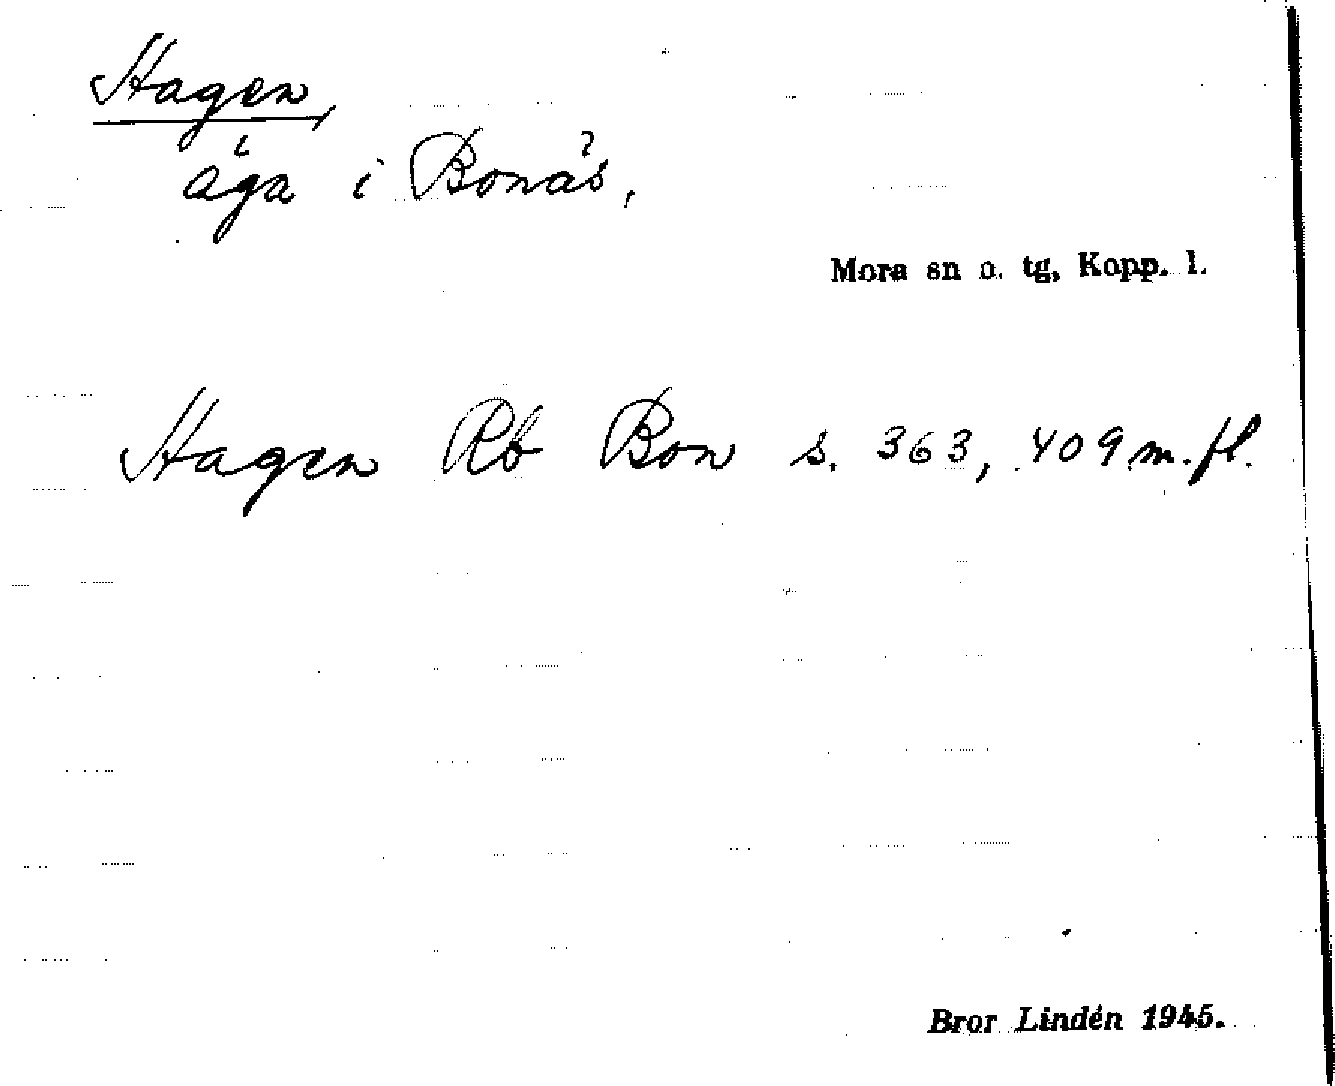 Hagen,
äga i Bonäs,
Mora sn o. tg, Kopp. l.
Hagen Rb Bon s. 363, 409 m. fl.
Bror Lindén 1945.